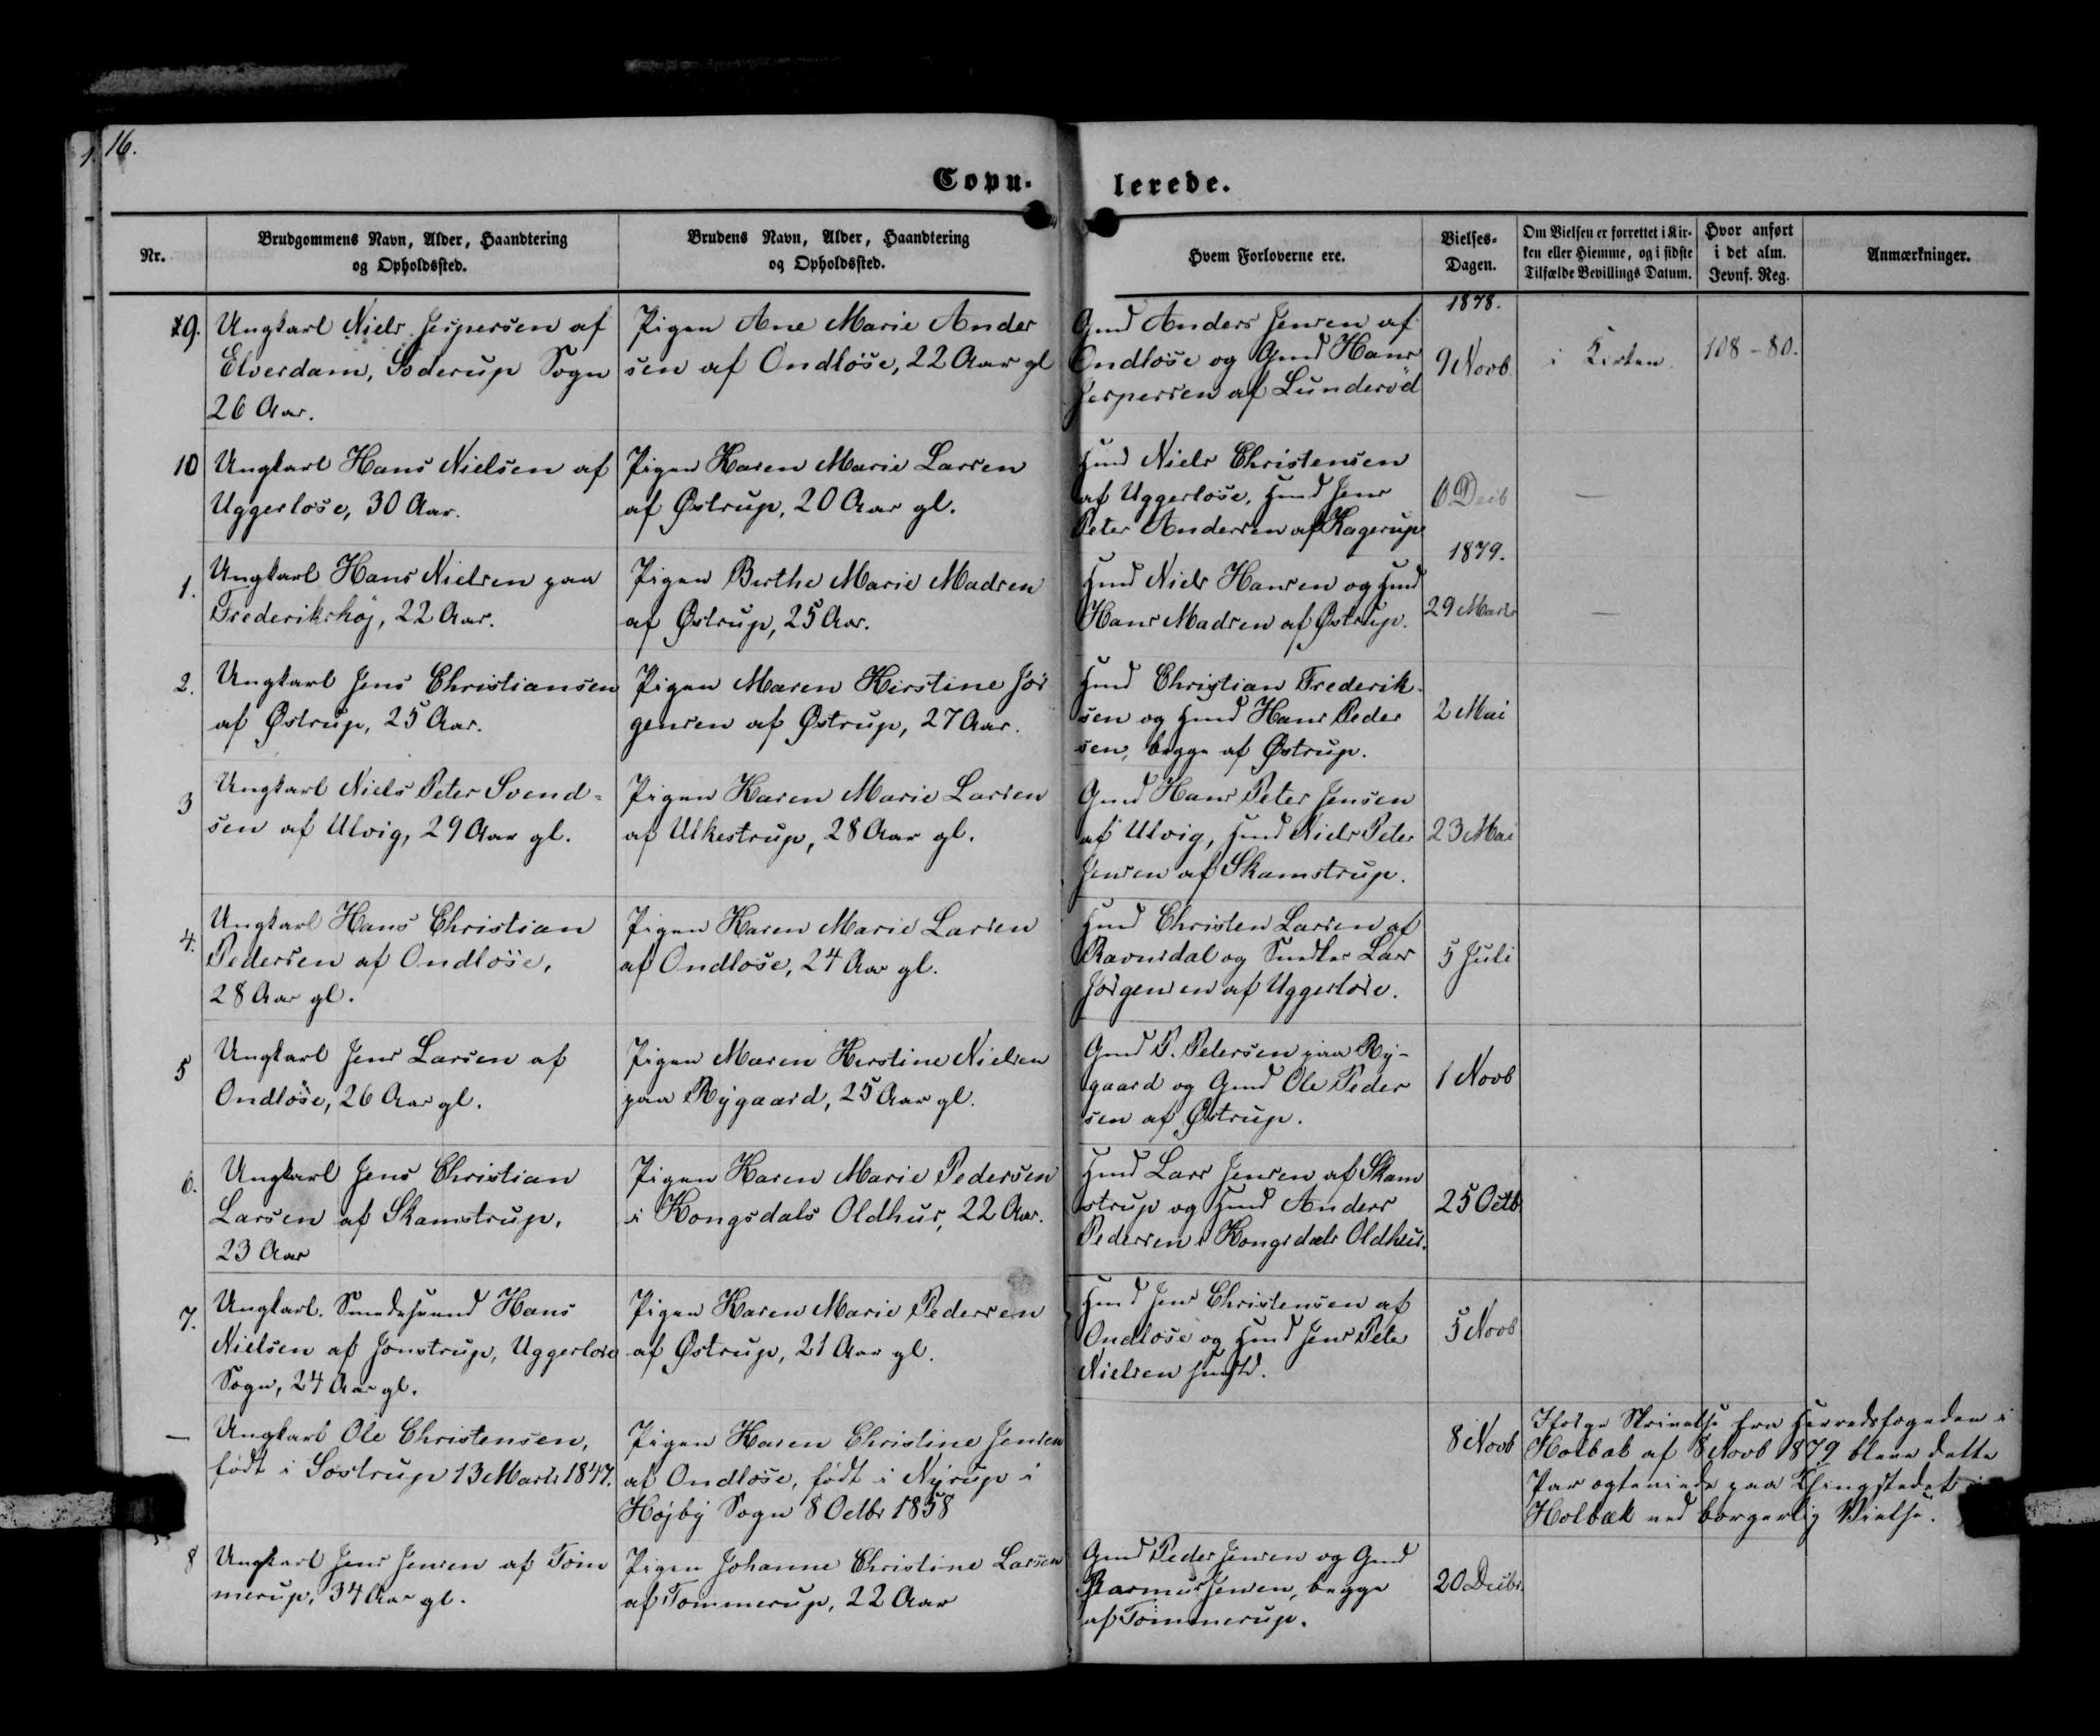 16.
Copu-
lerede.
Nr.
Brudgommens Navn, Alder, Haandtering
og Opholdssted.
Brudens Navn, Alder, Haandtering
og Opholdssted.
Hvem Forloverne ere.
Vielses-
Dagen.
Om Vielsen er forrettet i Kir-
ken eller Hiemme, og i sidste
Tilfælde Bevillings Datum.
Hvor anført
i det alm.
Jevnf. Reg.
Anmærkninger.
9.
Ungkarl Niels Jespersen af
Elverdam, Soderup Sogn
26 Aar.
Pigen Ane Marie Ander
sen af Ondløse, 22 Aar gl
Gmd Anders Jensen af
Ondløse og Gmd Hans
Jespersen af Lunderød
1878.
9 Novb
i Kirken.
108-80.
10
Ungkarl Hans Nielsen af
Uggerløse, 30 Aar.
Pigen Karen Marie Larsen
af Østrup, 20 Aar gl.
Hmd Niels Christensen
af Uggerløse, Hmd Jens
Peter Andersen af Kagerup
6 Decb
—
1.
Ungkarl Hans Nielsen paa
Frederikshöj, 22 Aar.
Pigen Birthe Marie Madsen
af Østrup, 25 Aar.
Hmd Niels Hansen og Hmd
Hans Madsen af Østrup.
1879.
29 Marts
—
2.
Ungkarl Jens Christiansen
af Østrup, 25 Aar.
Pigen Maren Kirstine Jör
gensen af Østrup, 27 Aar.
Hmd Christian Frederik-
sen og Hmd Hans Peder
sen, begge af Østrup.
2 Mai
3
Ungkarl Niels Peter Svend=
sen af Ulvig, 29 Aar gl.
Pigen Karen Marie Larsen
af Ulkestrup, 28 Aar gl.
Gmd Hans Peter Jensen
af Ulvig, Hmd Niels Peter
Jensen af Skamstrup.
23 Mai
4.
Ungkarl Hans Christian
Pedersen af Ondlöse,
28 Aar gl.
Pigen Karen Marie Larsen
af Ondløse, 24 Aar gl.
Hmd Christen Larsen af
Ravnsdal og Smeden Lars
Jörgensen af Uggerløse.
5 Juli
5
Ungkarl Jens Larsen af
Ondlöse, 26 Aar gl.
Pigen Maren Kirstine Nielsen
paa Rygaard, 25 Aar gl.
Gmd P. Petersen paa Ry-
gaard og Gmd Ole Peder
sen af Østrup.
1 Novb
6.
Ungkarl Jens Christian
Larsen af Skamstrup,
23 Aar
Pigen Karen Marie Pedersen
i Kongsdals Oldhus, 22 Aar.
Hmd Lars Jensen af Skam
strup og Hmd Anders
Pedersen i Kongsdals Oldhus.
25 Octb
7.
Ungkarl. Smedesvend Hans
Nielsen af Jonstrup, Uggerløse
Sogn, 24 Aar gl.
Pigen Karen Marie Pedersen
af Østrup, 21 Aar gl.
Hmd Jens Christensen af
Ondløse og Hmd Jens Peter
Nielsen
5 Novb
—
Ungkarl Ole Christensen,
født i Søstrup 13 Marts 1847.
Pigen Karen Christine Jensen
af Ondløse, født i Nyrup i
Højby Sogn 8 Octbr 1858
8 Novb
Ifølge Skrivelse fra Herredsfogeden i
Holbæk af 8 Novb 1879 bleve dette
Par ægteviede paa Thingstedet i
Holbæk ved borgerlig Vielse.
8
Ungkarl Jens Jensen af Töm
merup, 34 Aar gl.
Pigen Johanne Christine Larsen
af Tømmerup, 22 Aar
Gmd Peder Jensen og Gmd
Rasmus Jensen, begge
af Tömmerup.
20 Decbr.